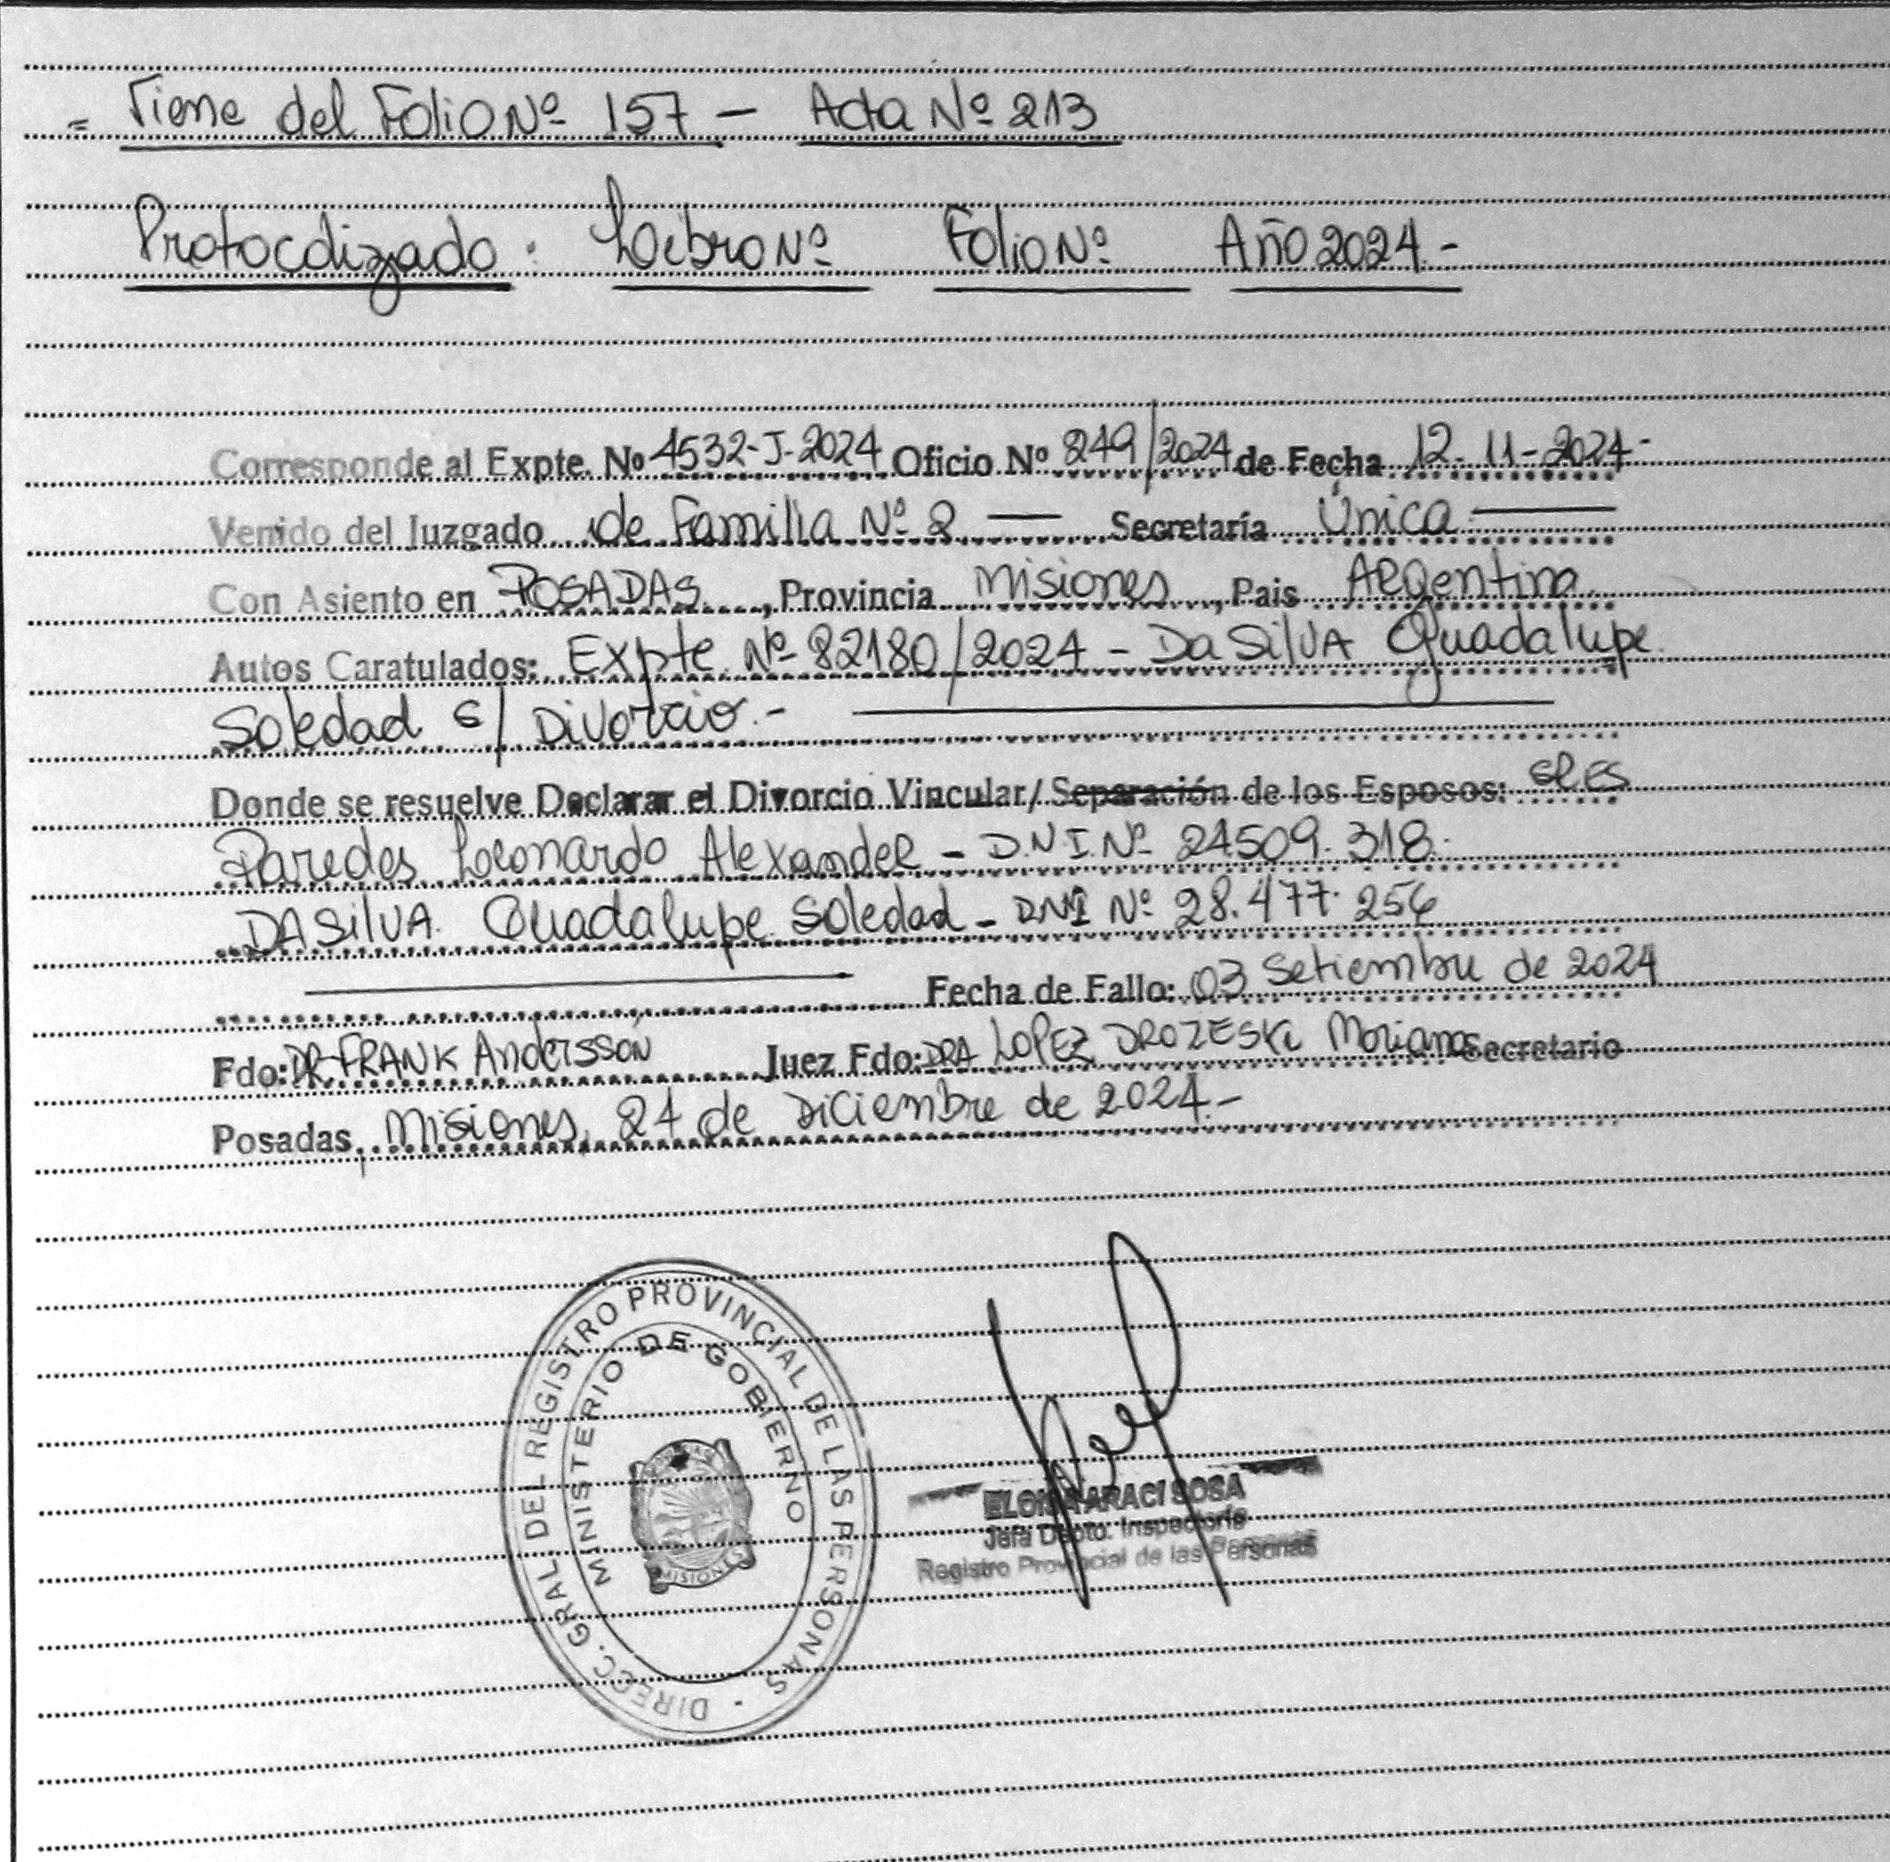 = Viene del Folio Nº 157 - Acta Nº 213
Protocolizado: Libro Nº Folio Nº Año 2024.-
Corresponde al Expte. Nº 4532-J-2024 Oficio Nº 849/2024 de Fecha 12-11-2024-
Venido del Juzgado de Familia Nº 2 — Secretaría Única —
Con Asiento en POSADAS, Provincia Misiones, Pais Argentina
Autos Caratulados: Expte Nº 82180/2024 - Da Silva Guadalupe
Soledad s/ Divorcio.-
Donde se resuelve Declarar el Divorcio Vincular/ Separación de los Esposos: SRES
Paredes Leonardo Alexander - D.N.I. Nº 24509.318.
DA SILVA Guadalupe Soledad - DNI Nº 28.477.256
Fecha de Fallo: 03 Setiembre de 2024
Fdo: DR. FRANK Andersson Juez Fdo: DRA LOPEZ DROZESKI Moriana Secretario
Posadas, Misiones, 24 de Diciembre de 2024.-
DIREC. GRAL DEL REGISTRO PROVINCIAL DE LAS PERSONAS -
MINISTERIO DE GOBIERNO
MISIONES
ELOISA ARACI SOSA
Jefa Depto. Inspectoría
Registro Provincial de las Personas